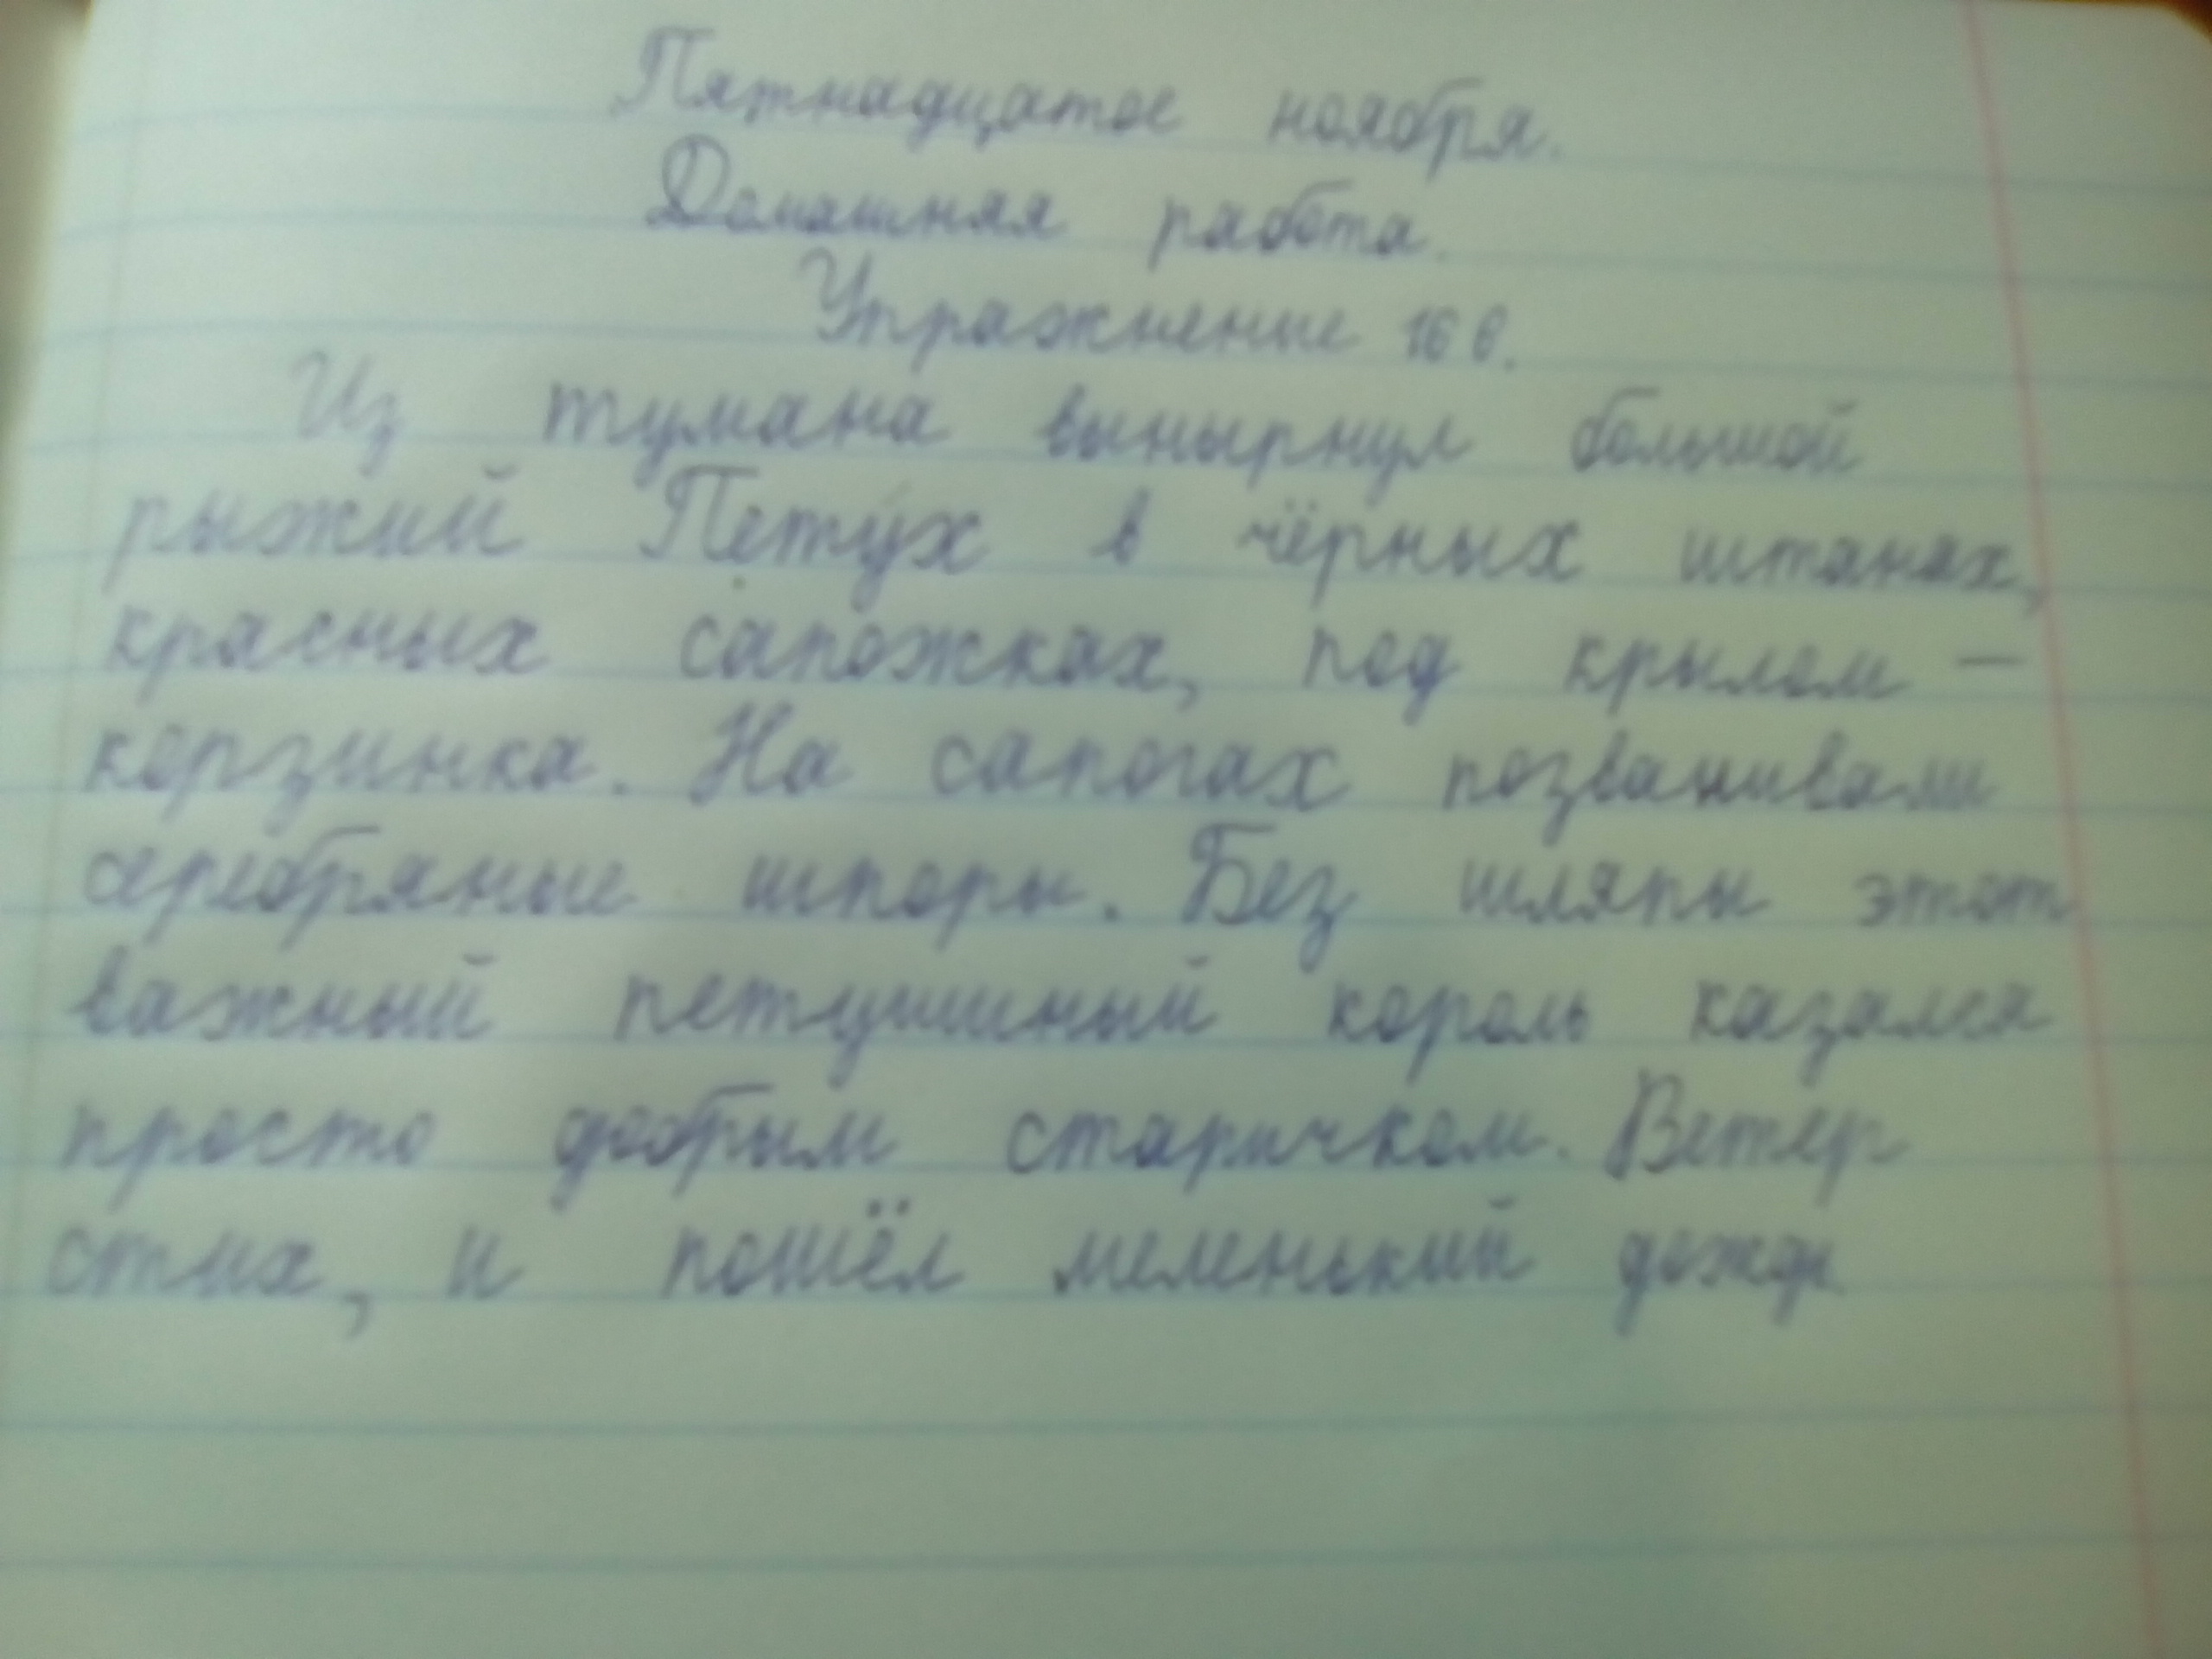 Пятнадцатое ноября.
Домашняя работа.
Упражнение 166.
Из тумана вынырнул большой
рыжий Петух в чёрных штанах,
красных сапожках, под крылом —
корзинка. На сапогах позванивали
серебряные шпоры. Без шляпы этот
важный петушиный король казался
просто добрым старичком. Ветер
стих, и пошёл меленький дождь